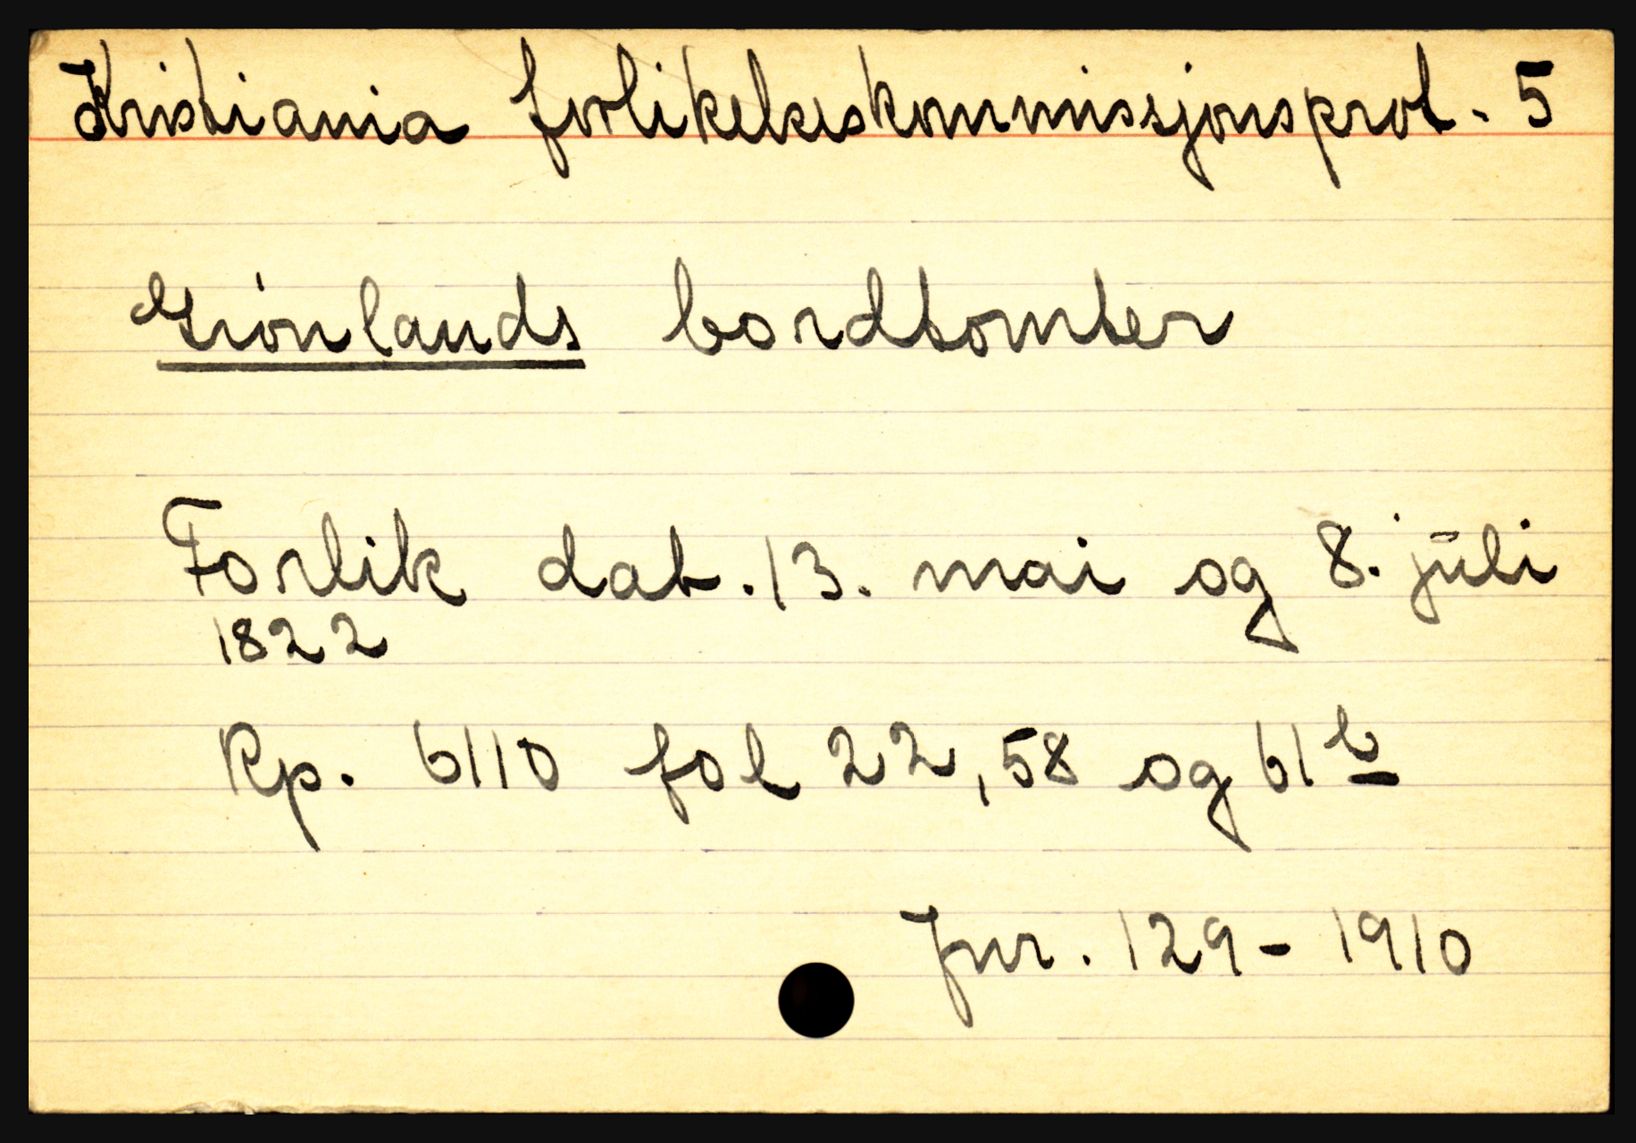 Kristiania forlikelseskommissjonsprot. 5
Grönlands bordtomter
Forlik dat. 13. mai og 8. juli
1822
Rp. 6110 fol 22, 58 og 61 b
Jnr. 129 - 1910